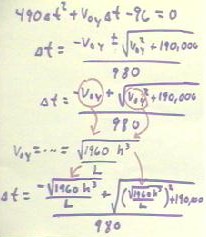 490Δt² + V₀yΔt - 96 = 0
Δt = (-V₀y ± √(V₀y² + 190,000)) / 980
Δt = (-V₀y + √(V₀y² + 190,000)) / 980
V₀y = ... = √(1960 h³) / L
Δt = (-√(1960 h³) / L + √((√(1960 h³) / L)² + 190,000)) / 980